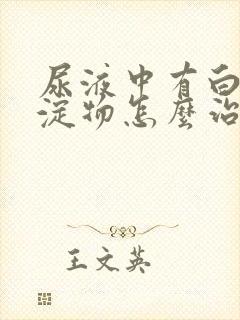 尿液中有白
淀物怎麼治
王文英